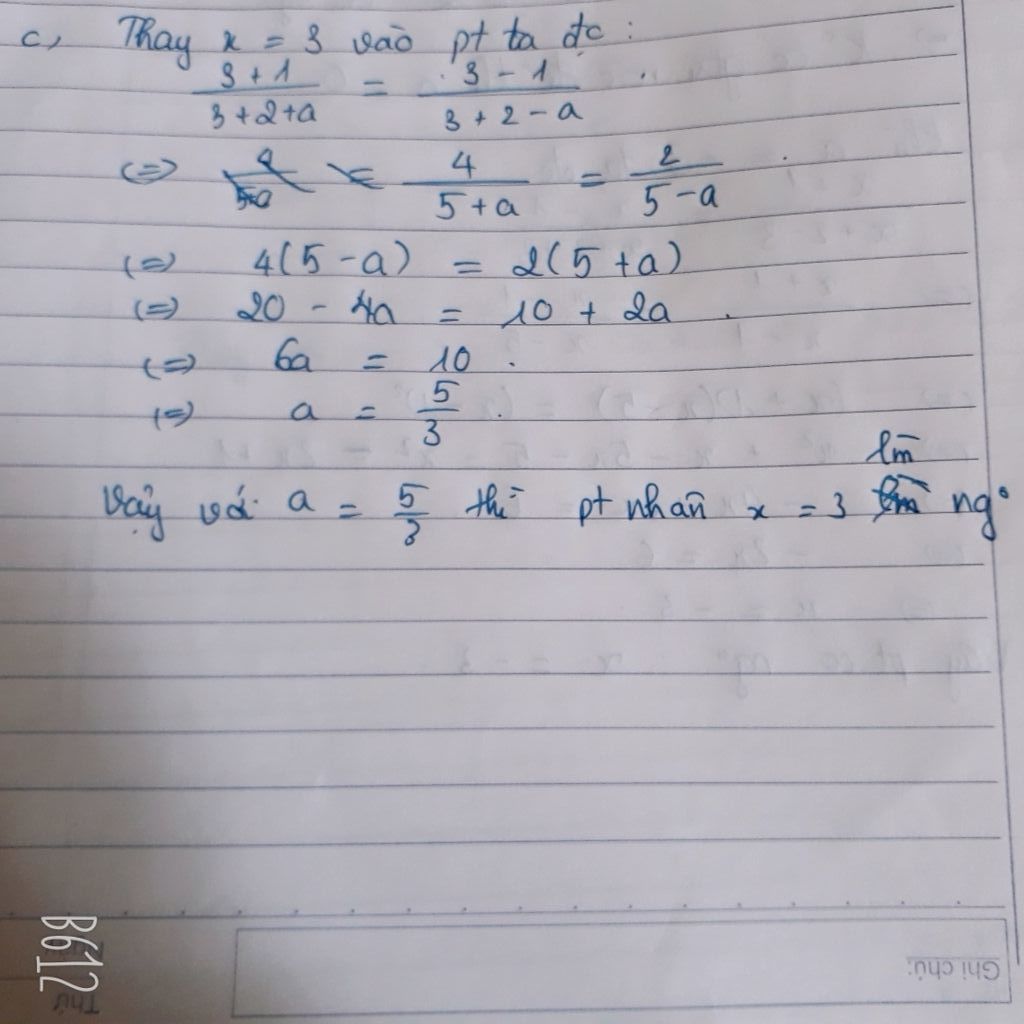 c, Thay x = 3 vào pt ta đc :
\frac{3+1}{3+2+a} = \frac{3-1}{3+2-a}
(=) \frac{4}{5+a} = \frac{2}{5-a}
(=) 4(5-a) = 2(5+a)
(=) 20 - 4a = 10 + 2a
(=) 6a = 10 .
(=) a = \frac{5}{3} .
Vậy với a = \frac{5}{3} thì pt nhận x = 3 lm ng°
Ghi chú:
Thứ
B612